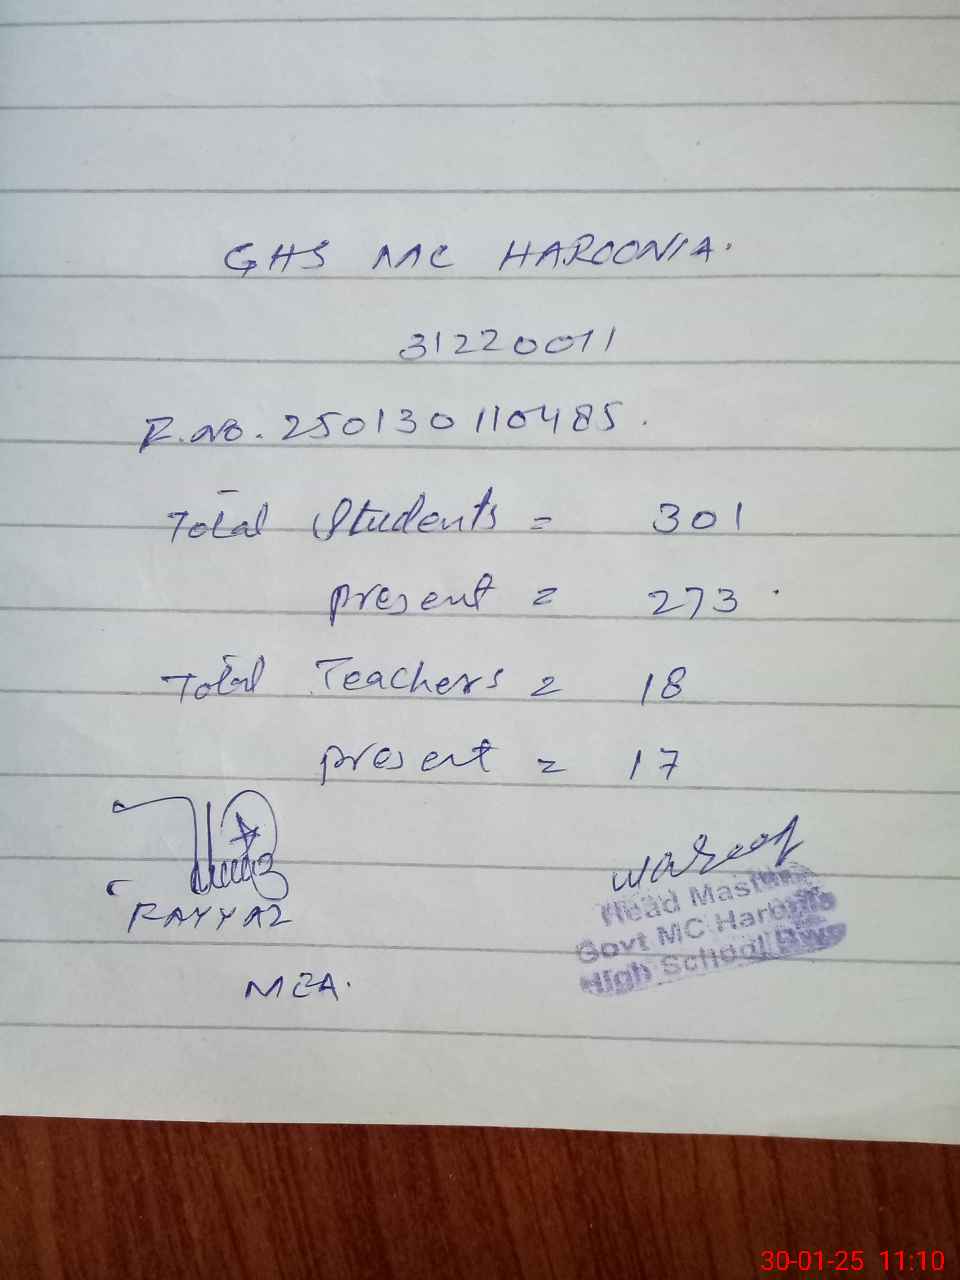 GHS MC HAROONIA.
31220011
R.No. 250130110485.
Total Students = 301
present = 273.
Total Teachers = 18
present = 17
FAYYAZ
MEA.
Head Master
Govt MC Haronia
High School Bwp
30-01-25 11:10